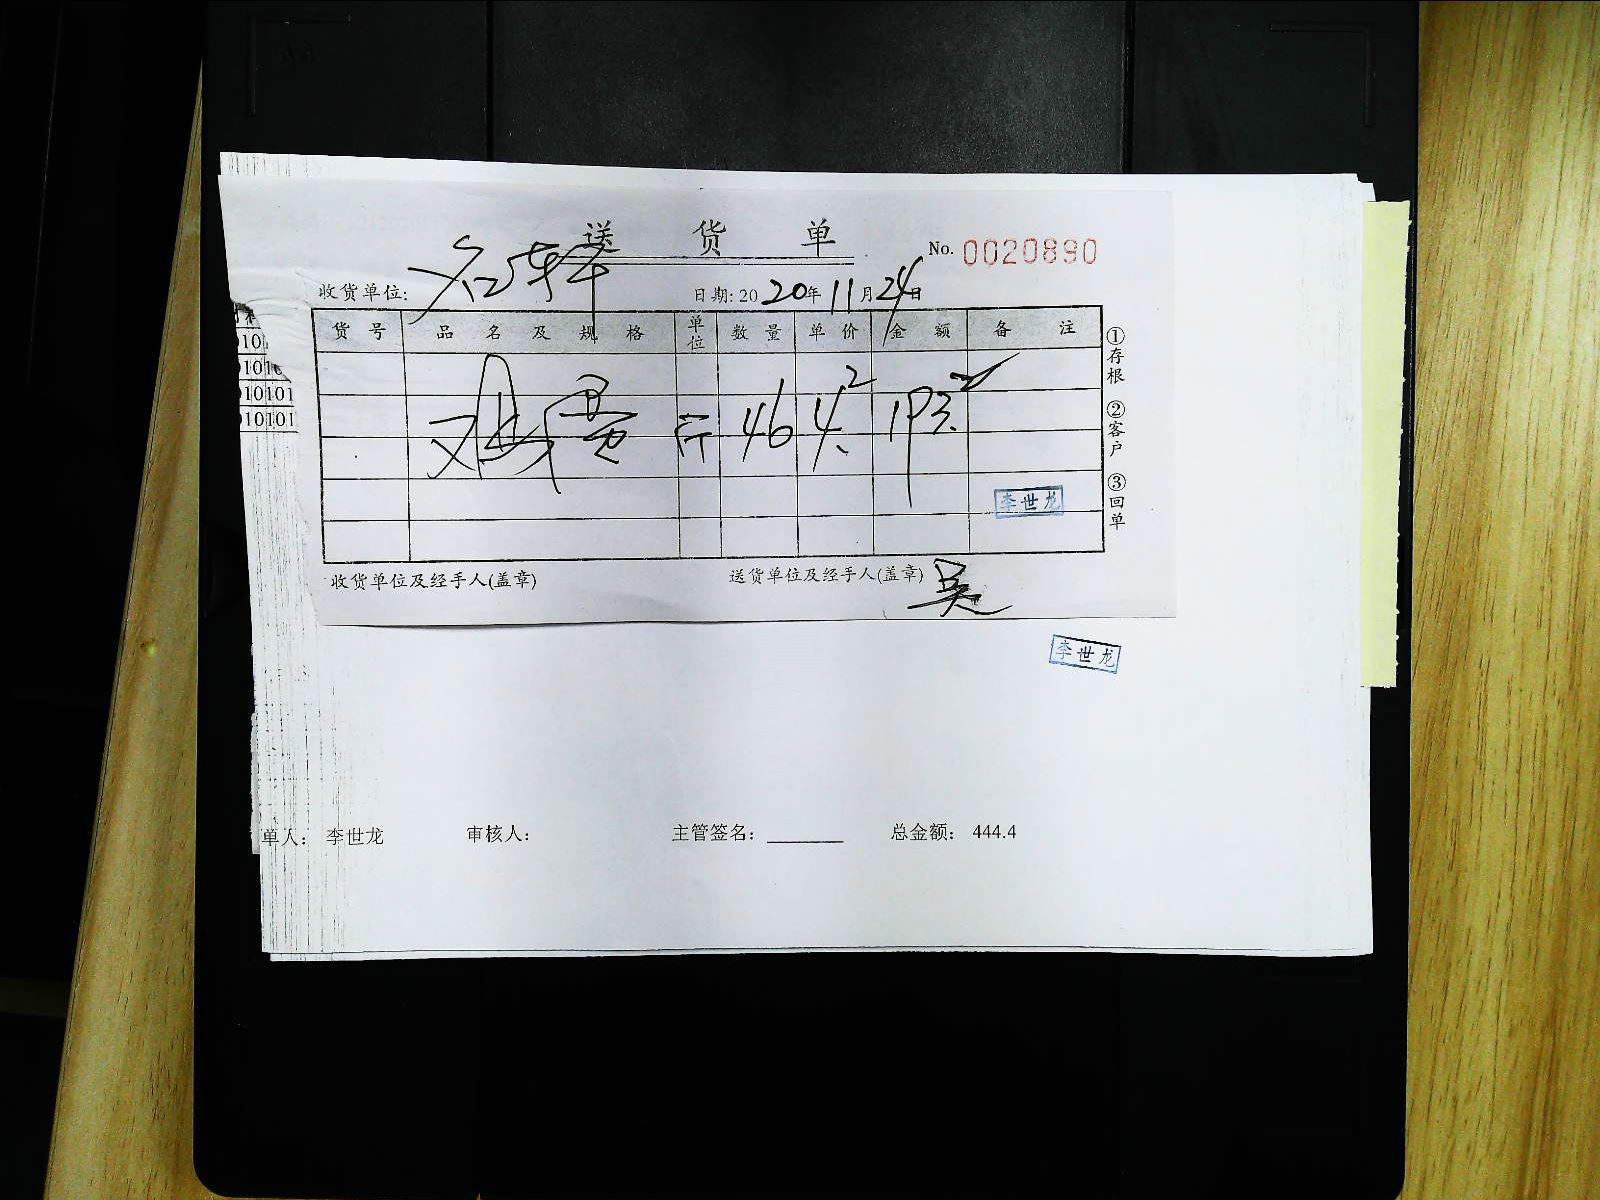 送 货 单
No. 0020890
收货单位:
日期: 2020年11月24日
货号 品名及规格 单位 数量 单价 金额 备注
鸡蛋 斤 46 4.2 193.2
李世龙
①存根 ②客户 ③回单
收货单位及经手人(盖章) 送货单位及经手人(盖章) 吴
101
1010
10101
010101
李世龙
单人: 李世龙 审核人: 主管签名: 总金额: 444.4